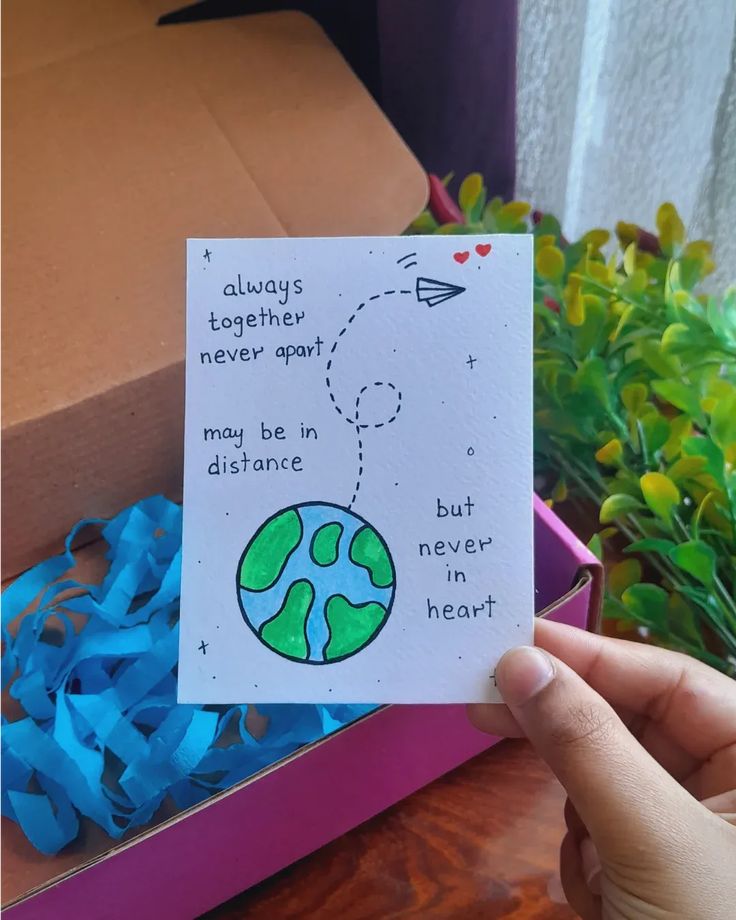 always
together
never apart
may be in
distance
but
never
in
heart